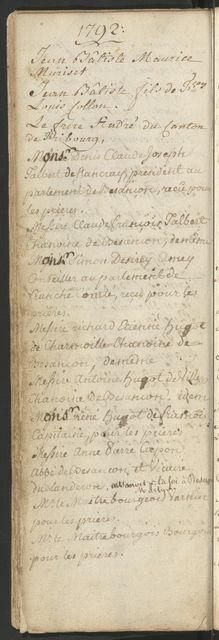 1792:
Jean Batiste Maurice
Muriset
Jean Batiste fils de Frs
Louis Collon.
Le frère André du Canton
de Fribourg,
Monsr Denis Claude Joseph
Talbert de Nancray, président au
parlement de Besancon, recu pour
les prieres.
Messire Claude françois Talbert
Chanoine de Besancon, de même
Monsr Simon Desirey
Conseiller au parlement de
franche Comté, recu pour les
prieres.
Messire richard Etienne hugot
de Charmoille Chanoine de
Besancon, de même
Messire Antoine hugot de
Chanoine de Besancon. idem
Monsr réné hugot de
Capitaine, pour les prieres
Messire Anne Pierre
Abbé de Besancon et Vicaire
du Landeron.
Mr le Maitrebourgeois
pour les prieres.
Mr le Maitrebourgois Bourgoin
pour les prieres.